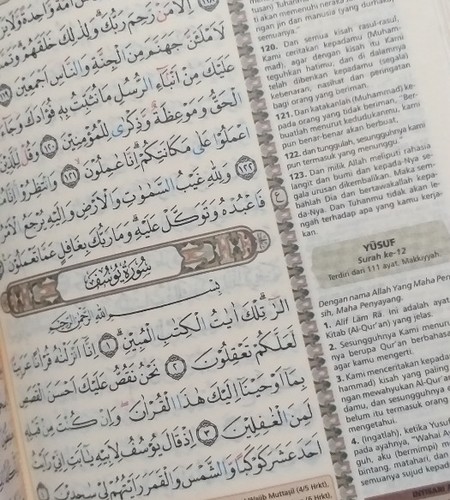 اُمَّةً وَّاحِدَةً
اِلَّا مَنْ رَّحِمَ رَبُّكَ وَلِذٰلِكَ خَلَقَهُمْ
لَاَمْلَـَٔنَّ جَهَنَّمَ مِنَ الْجِنَّةِ وَالنَّاسِ اَجْمَعِيْنَ
عَلَيْكَ مِنْ اَنْۢبَاۤءِ الرُّسُلِ مَا نُثَبِّتُ بِهٖ فُؤَادَكَ وَجَاۤءَ
الْحَقُّ وَمَوْعِظَةٌ وَّذِكْرٰى لِلْمُؤْمِنِيْنَ ١٢٠ وَقُلْ لِّلَّذِيْنَ
اعْمَلُوْا عَلٰى مَكَانَتِكُمْ اِنَّا عٰمِلُوْنَ ١٢١ وَانْتَظِرُوْا اِنَّا
١٢٢ وَلِلّٰهِ غَيْبُ السَّمٰوٰتِ وَالْاَرْضِ وَاِلَيْهِ يُرْجَعُ الْاَمْرُ
فَاعْبُدْهُ وَتَوَكَّلْ عَلَيْهِ وَمَا رَبُّكَ بِغَافِلٍ عَمَّا تَعْمَلُوْنَ
سُوْرَةُ يُوْسُفَ
بِسْمِ اللّٰهِ الرَّحْمٰنِ الرَّحِيْمِ
الۤرٰ تِلْكَ اٰيٰتُ الْكِتٰبِ الْمُبِيْنِ ١ اِنَّآ اَنْزَلْنٰهُ قُرْاٰنًا عَرَبِيًّا
لَّعَلَّكُمْ تَعْقِلُوْنَ ٢ نَحْنُ نَقُصُّ عَلَيْكَ اَحْسَنَ الْقَصَصِ
بِمَآ اَوْحَيْنَآ اِلَيْكَ هٰذَا الْقُرْاٰنَ وَاِنْ كُنْتَ مِنْ قَبْلِهٖ
لَمِنَ الْغٰفِلِيْنَ ٣ اِذْ قَالَ يُوْسُفُ لِاَبِيْهِ يٰٓاَبَتِ اِنِّيْ رَاَيْتُ
اَحَدَ عَشَرَ كَوْكَبًا وَّالشَّمْسَ وَالْقَمَرَ رَاَيْتُهُمْ لِيْ سٰجِدِيْنَ
Wajib Muttaşil (4/5 Hrkt),
ti) akan memenuhi neraka
ngan jin dan manusia (yang durhaka)
semuanya."
120. Dan semua kisah rasul-rasul,
Kami ceritakan kepadamu (Muham-
mad), agar dengan kisah itu Kami
teguhkan hatimu; dan di dalamnya
telah diberikan kepadamu (segala)
kebenaran, nasihat dan peringatan
bagi orang yang beriman.
121. Dan katakanlah (Muhammad) ke-
pada orang yang tidak beriman, "Ber-
buatlah menurut kedudukanmu, kami
pun benar-benar akan berbuat,
122. dan tunggulah, sesungguhnya kami
pun termasuk yang menunggu."
123. Dan milik Allah meliputi rahasia
langit dan bumi dan kepada-Nya se-
gala urusan dikembalikan. Maka sem-
bahlah Dia dan bertawakallah kepa-
da-Nya. Dan Tuhanmu tidak akan le-
ngah terhadap apa yang kamu kerja-
kan.
YŪSUF
Surah ke-12
Terdiri dari 111 ayat. Makkiyyah.
Dengan nama Allah Yang Maha Penga-
sih, Maha Penyayang.
1. Alif Lām Rā. Ini adalah ayat
Kitab (Al-Qur'an) yang jelas.
2. Sesungguhnya Kami menurun
nya berupa Qur'an berbahasa
agar kamu mengerti.
3. Kami menceritakan kepada
hammad) kisah yang paling
ngan mewahyukan Al-Qur'
damu, dan sesungguhnya
belum itu termasuk orang
mengetahui.
4. (Ingatlah), ketika Yusuf
pada ayahnya, "Wahai Ay
guh, aku (bermimpi) m
bintang, matahari, dan
semuanya sujud kepad